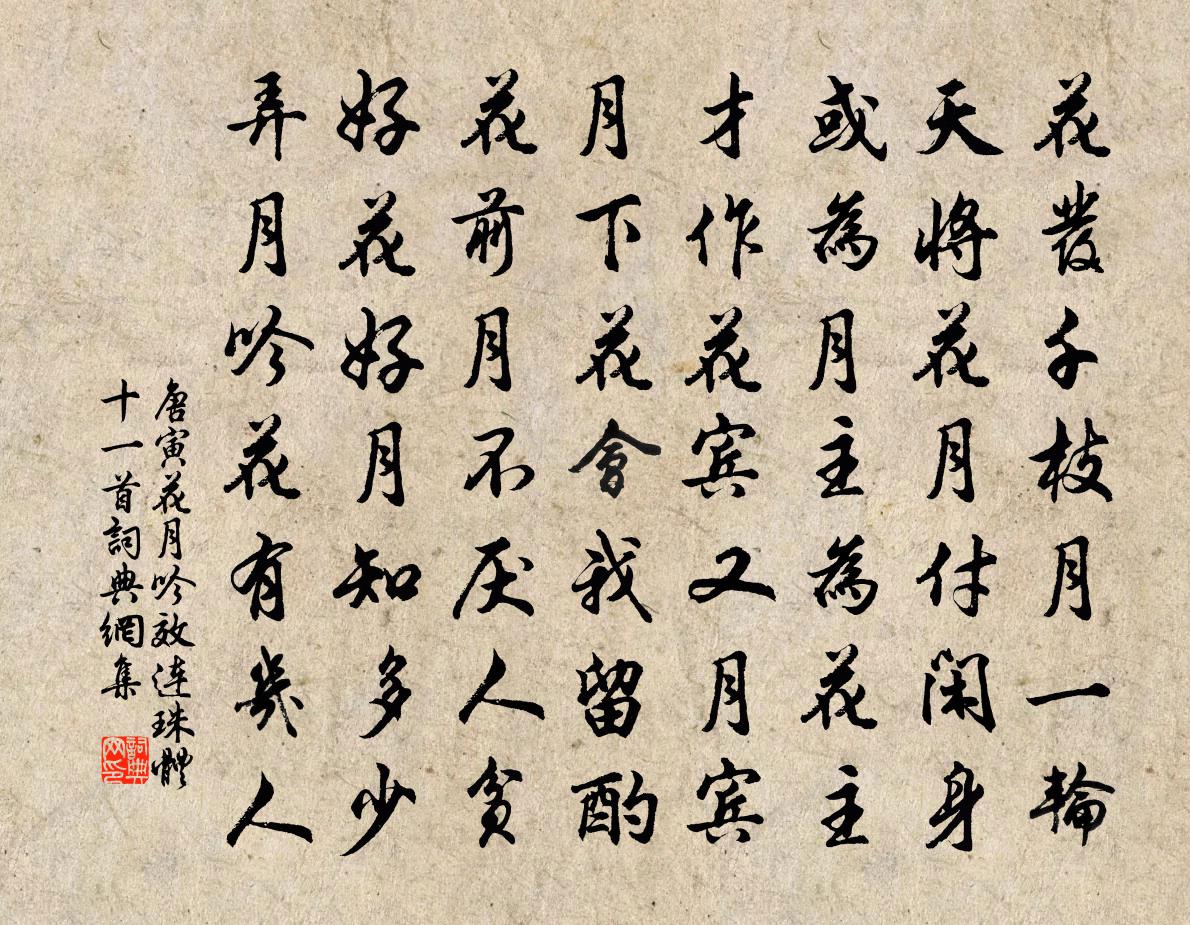 花發千枝月一輪
天將花月付閑身
或為月主為花主
才作花宾又月宾
月下花會我留酌
花前月不厌人貧
好花好月知多少
弄月吟花有幾人
唐寅花月吟效连珠體
十一首詞典網集
詞典網印